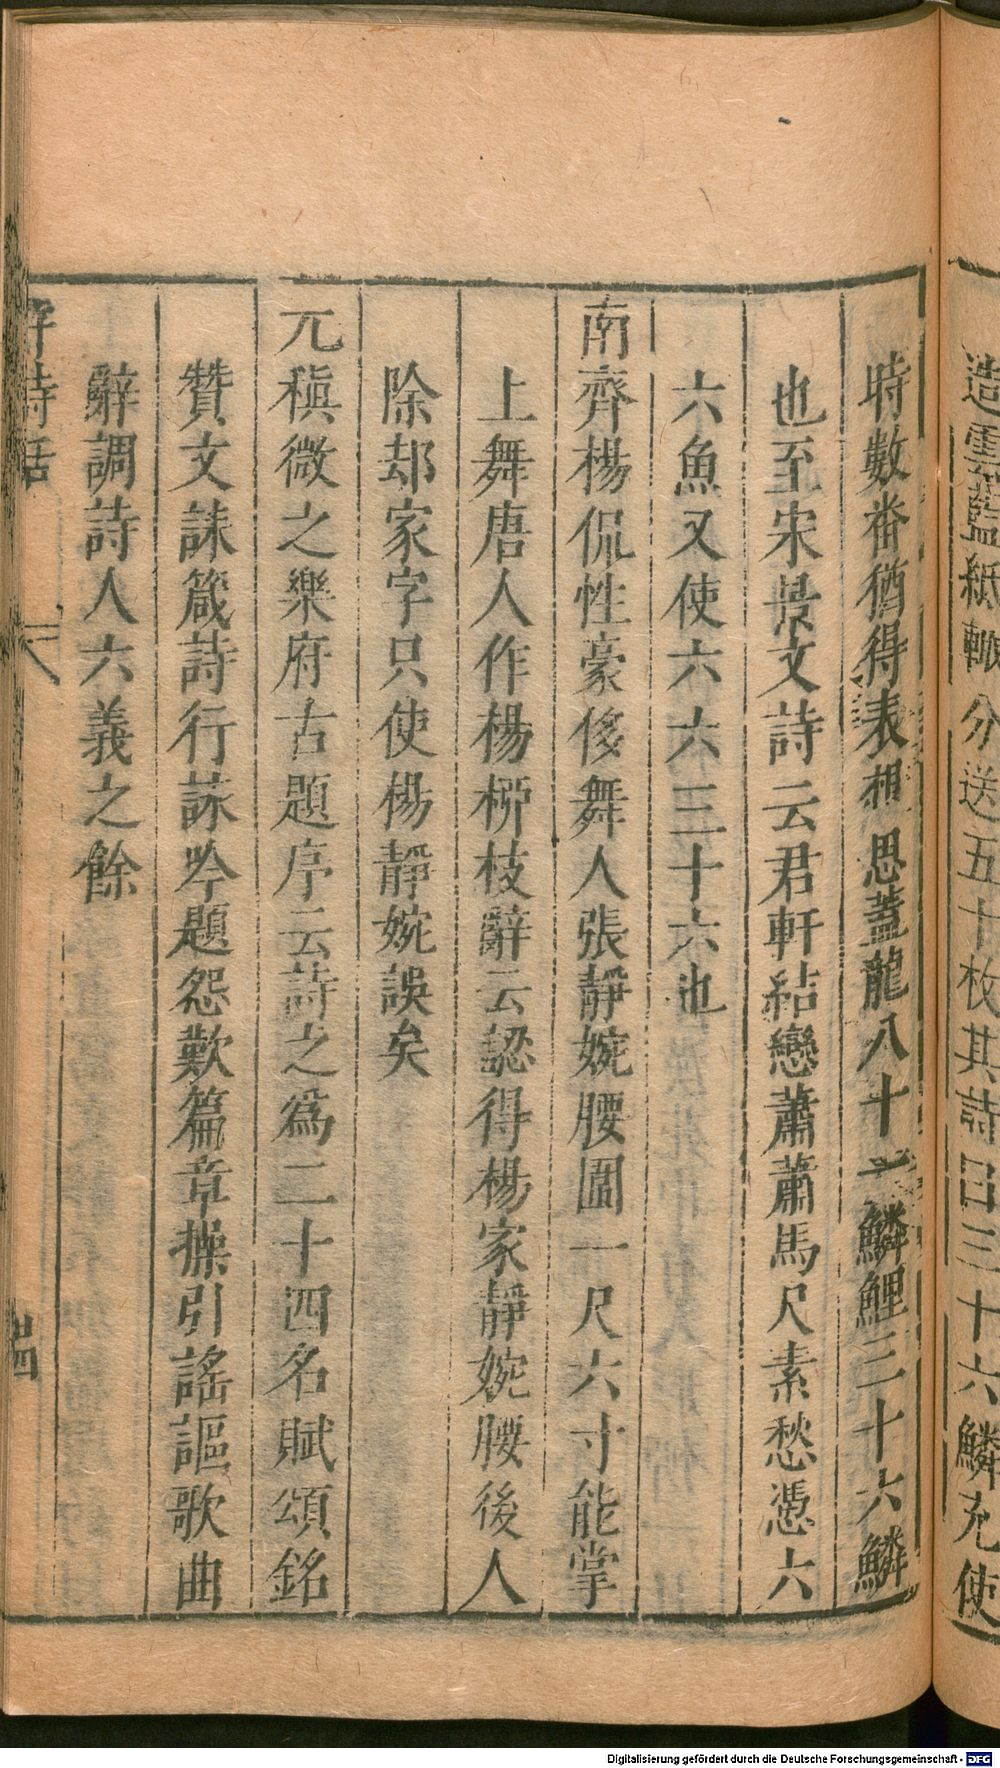 造雲藍紙輙分送五十枚其詩曰三十六鱗充使
時數番猶得表相思蓋龍八十一鱗鯉三十六鱗
也至宋景文詩云君軒結戀蕭蕭馬尺素愁憑六
六魚又使六六三十六也
南齊楊侃性豪侈舞人張靜婉腰圍一尺六寸能掌
上舞唐人作楊桺枝辭云認得楊家靜婉腰後人
除却家字只使楊靜婉誤矣
元稹微之樂府古題序云詩之爲二十四名賦頌銘
贊文誄箴詩行詠吟題怨歎篇章操引謠謳歌曲
辭調詩人六義之餘
詩話
六
四
Digitalisierung gefördert durch die Deutsche Forschungsgemeinschaft - DFG